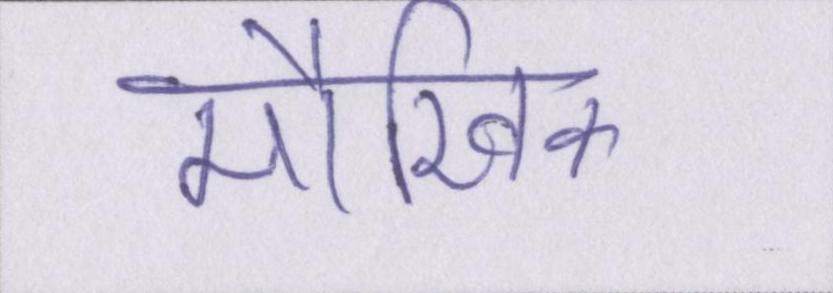 मौखिक